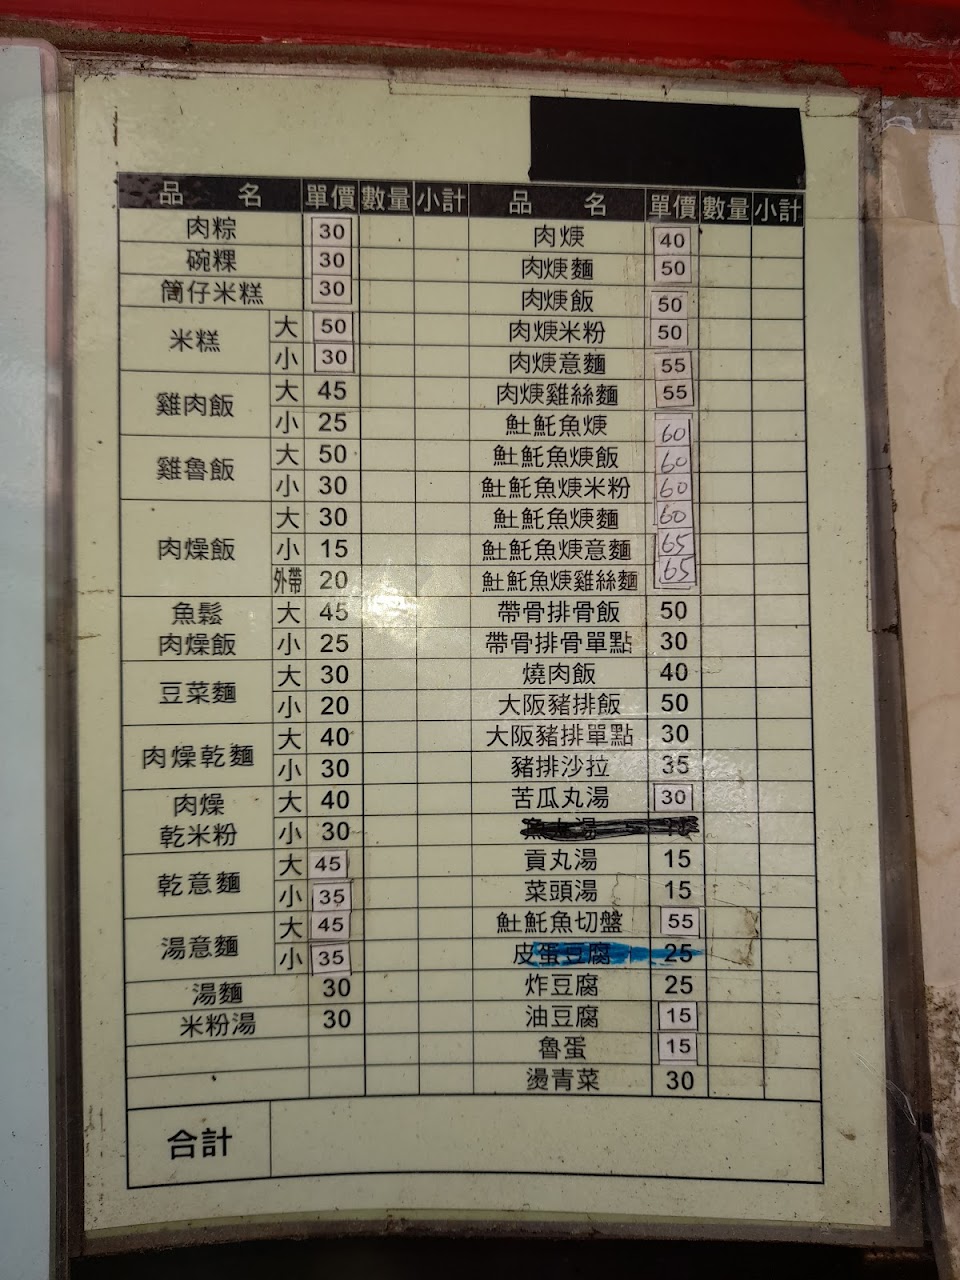 品名 單價 數量 小計
肉粽 30
碗粿 30
筒仔米糕 30
米糕 大 50
小 30
雞肉飯 大 45
小 25
雞魯飯 大 50
小 30
肉燥飯 大 30
小 15
外帶 20
魚鬆 大 45
肉燥飯 小 25
豆菜麵 大 30
小 20
肉燥乾麵 大 40
小 30
肉燥 大 40
乾米粉 小 30
乾意麵 大 45
小 35
湯意麵 大 45
小 35
湯麵 30
米粉湯 30
品名 單價 數量 小計
肉焿 40
肉焿麵 50
肉焿飯 50
肉焿米粉 50
肉焿意麵 55
肉焿雞絲麵 55
魠魠魚焿 60
魠魠魚焿飯 60
魠魠魚焿米粉 60
魠魠魚焿麵 60
魠魠魚焿意麵 65
魠魠魚焿雞絲麵 65
帶骨排骨飯 50
帶骨排骨單點 30
燒肉飯 40
大阪豬排飯 50
大阪豬排單點 30
豬排沙拉 35
苦瓜丸湯 30
貢丸湯 15
菜頭湯 15
魠魠魚切盤 55
皮蛋豆腐 25
炸豆腐 25
油豆腐 15
魯蛋 15
燙青菜 30
合計